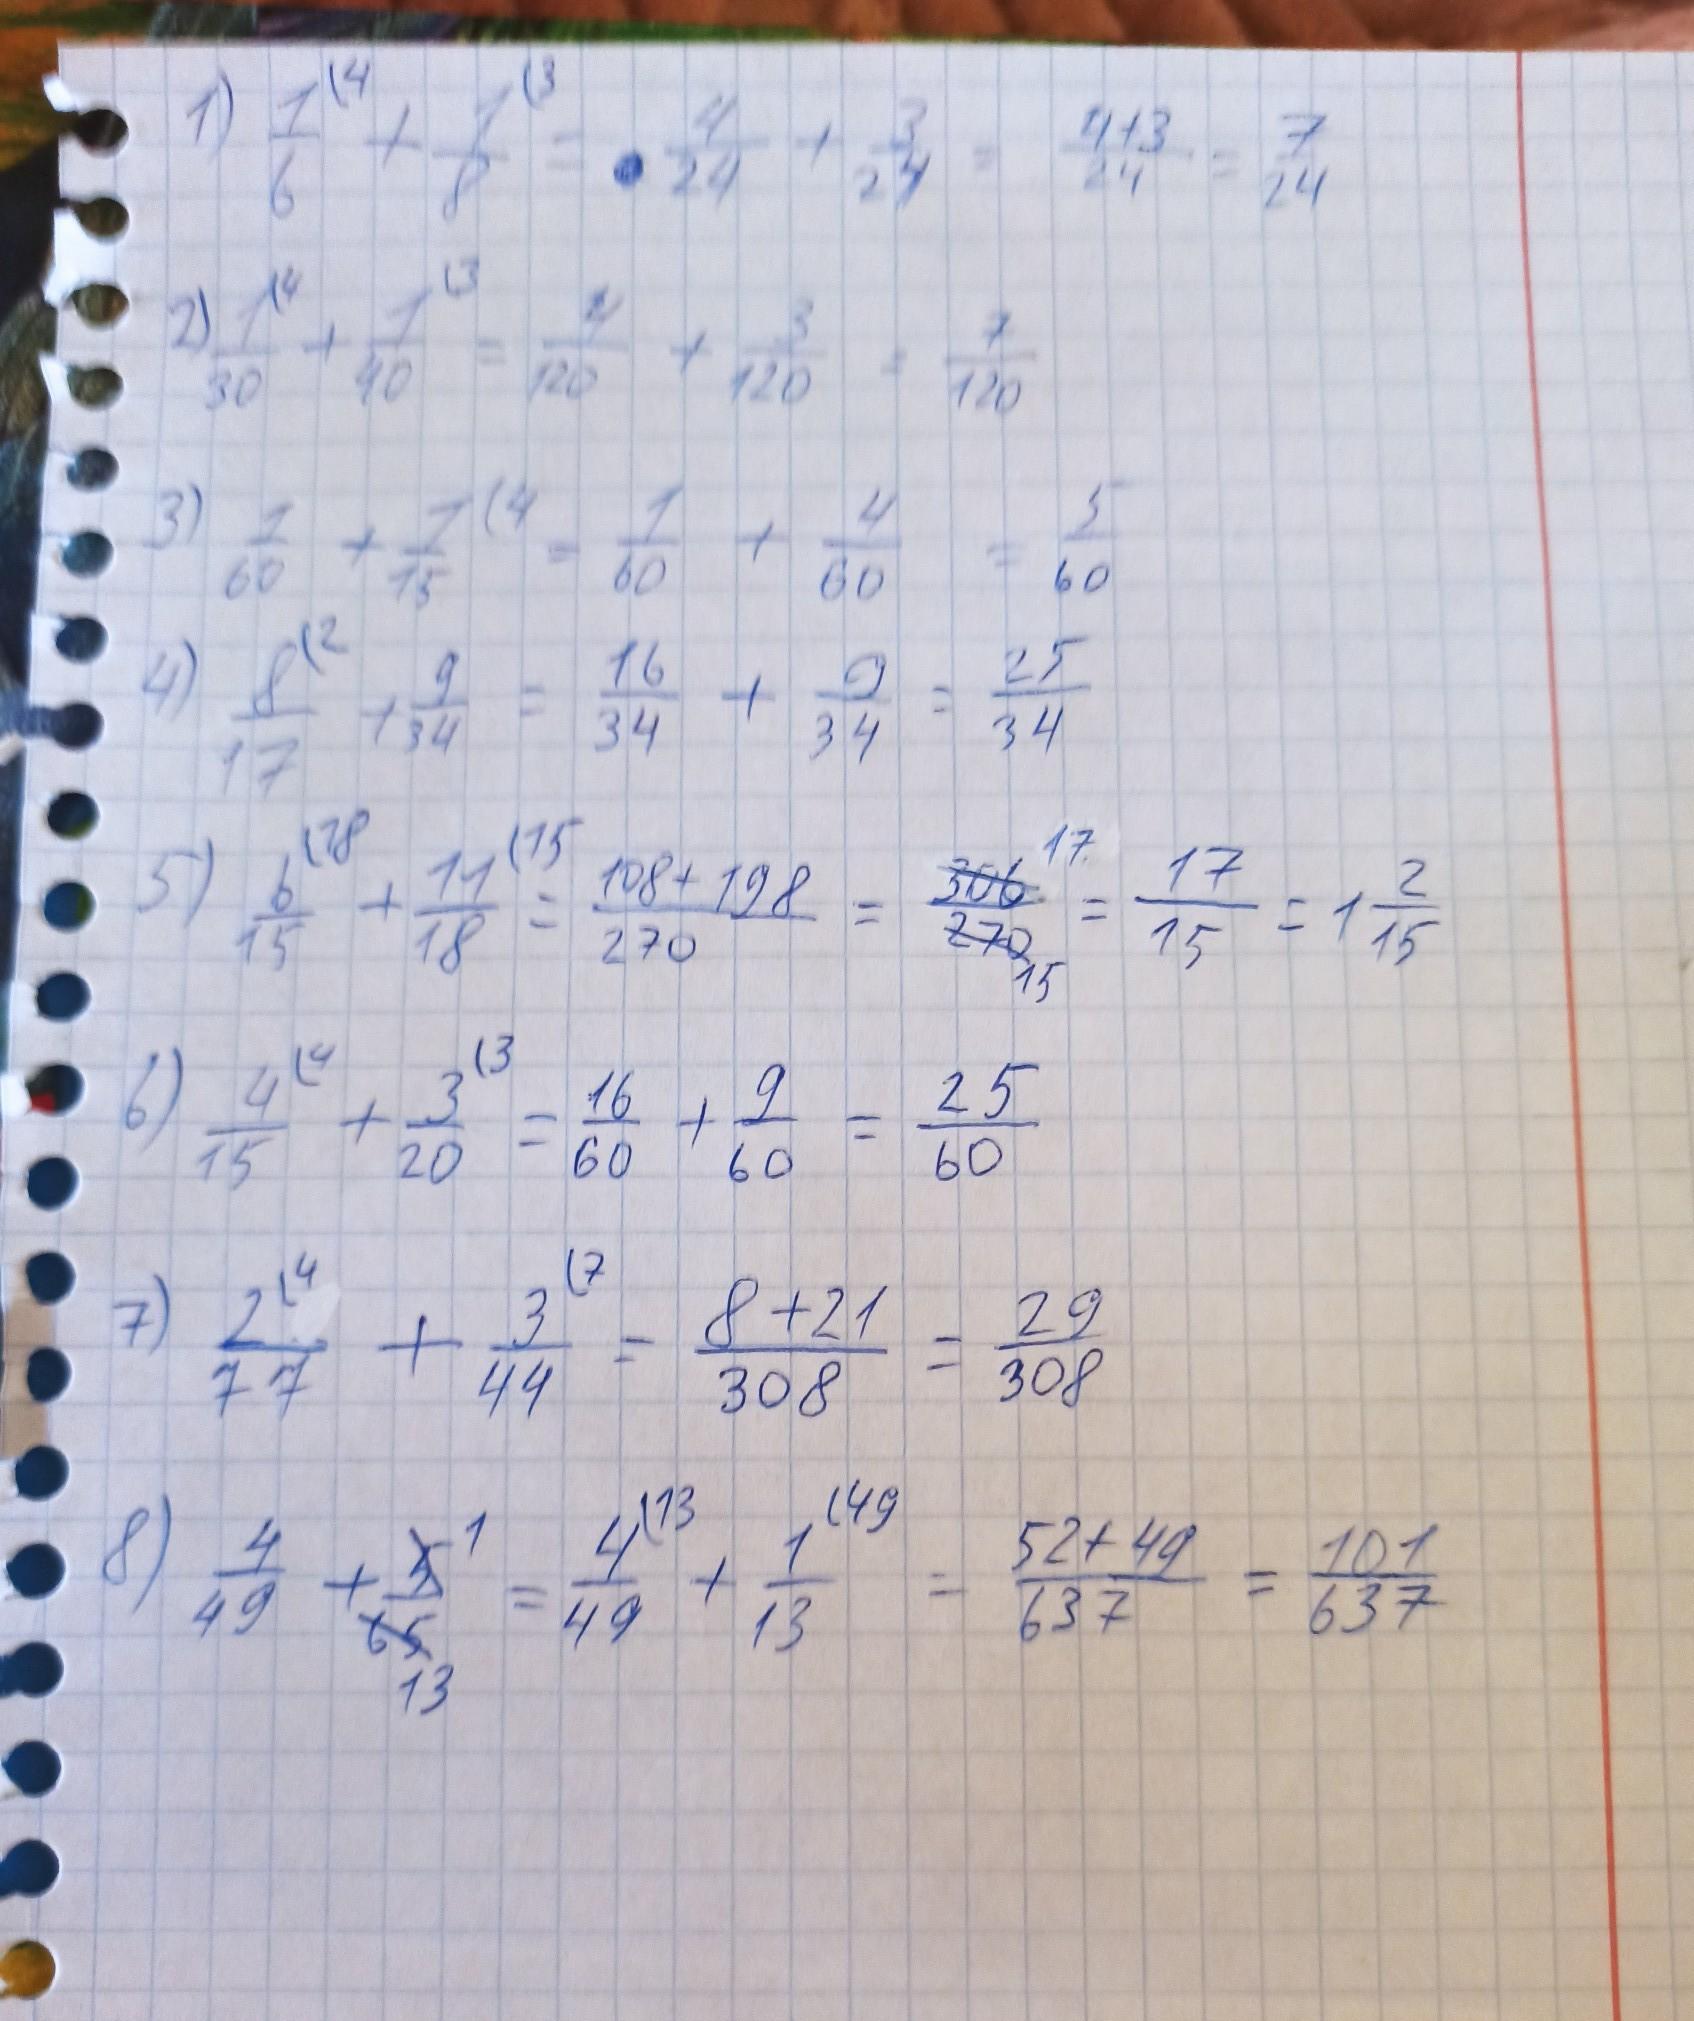 1) 1/6 (4 + 1/8 (3 = 4/24 + 3/24 = 4+3/24 = 7/24
2) 1/30 (4 + 1/40 (3 = 4/120 + 3/120 = 7/120
3) 1/60 + 1/15 (4 = 1/60 + 4/60 = 5/60
4) 8/17 (2 + 9/34 = 16/34 + 9/34 = 25/34
5) 6/15 (18 + 11/18 (15 = 108+198/270 = 306/270 17/15 = 17/15 = 1 2/15
6) 4/15 (4 + 3/20 (3 = 16/60 + 9/60 = 25/60
7) 2/77 (4 + 3/44 (7 = 8+21/308 = 29/308
8) 4/49 + 5/65 1/13 = 4/49 (13 + 1/13 (49 = 52+49/637 = 101/637